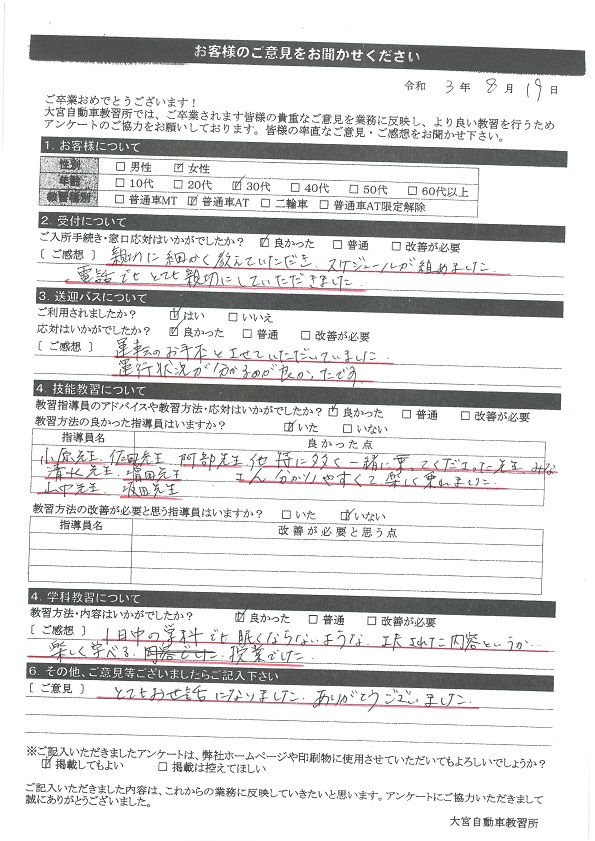 お客様のご意見をお聞かせください
令和 3 年 8 月 19 日
ご卒業おめでとうございます！
大宮自動車教習所では、ご卒業されます皆様の貴重なご意見を業務に反映し、より良い教習を行うため
アンケートのご協力をお願いしております。皆様の率直なご意見・ご感想をお聞かせ下さい。
1. お客様について
性別 □ 男性 ☑ 女性
年齢 □ 10代 □ 20代 ☑ 30代 □ 40代 □ 50代 □ 60代以上
教習種別 □ 普通車MT ☑ 普通車AT □ 二輪車 □ 普通車AT限定解除
2. 受付について
ご入所手続き・窓口応対はいかがでしたか？ ☑ 良かった □ 普通 □ 改善が必要
〔 ご感想 〕 親切に細かく教えていただき、スケジュールが組めました。
電話でもとても親切にしていただきました。
3. 送迎バスについて
ご利用されましたか？ ☑ はい □ いいえ
応対はいかがでしたか？ ☑ 良かった □ 普通 □ 改善が必要
〔 ご感想 〕 運転のお手本とさせていただいていました。
運行状況が分かるのが良かったです。
4. 技能教習について
教習指導員のアドバイスや教習方法・応対はいかがでしたか？ ☑ 良かった □ 普通 □ 改善が必要
教習方法の良かった指導員はいますか？ ☑ いた □ いない
指導員名 良かった点
小原先生、佐田先生、阿部先生、他 特に多く一緒に乗ってくださった先生、みな
清水先生、濱田先生 さん分かりやすくて楽しく乗れました。
山中先生、坂田先生
教習方法の改善が必要と思う指導員はいますか？ □ いた ☑ いない
指導員名 改善が必要と思う点
4. 学科教習について
教習方法・内容はいかがでしたか？ ☑ 良かった □ 普通 □ 改善が必要
〔 ご感想 〕 1日中の学科でも眠くならないような、工夫された内容というか、
楽しく学べる 内容でした 授業でした。
6. その他、ご意見等ございましたらご記入下さい
〔 ご意見 〕 とてもお世話になりました。ありがとうございました。
※ご記入いただきましたアンケートは、弊社ホームページや印刷物に使用させていただいてもよろしいでしょうか？
☑ 掲載してもよい □ 掲載は控えてほしい
ご記入いただきました内容は、これからの業務に反映していきたいと思います。アンケートにご協力いただきまして
誠にありがとうございました。
大宮自動車教習所